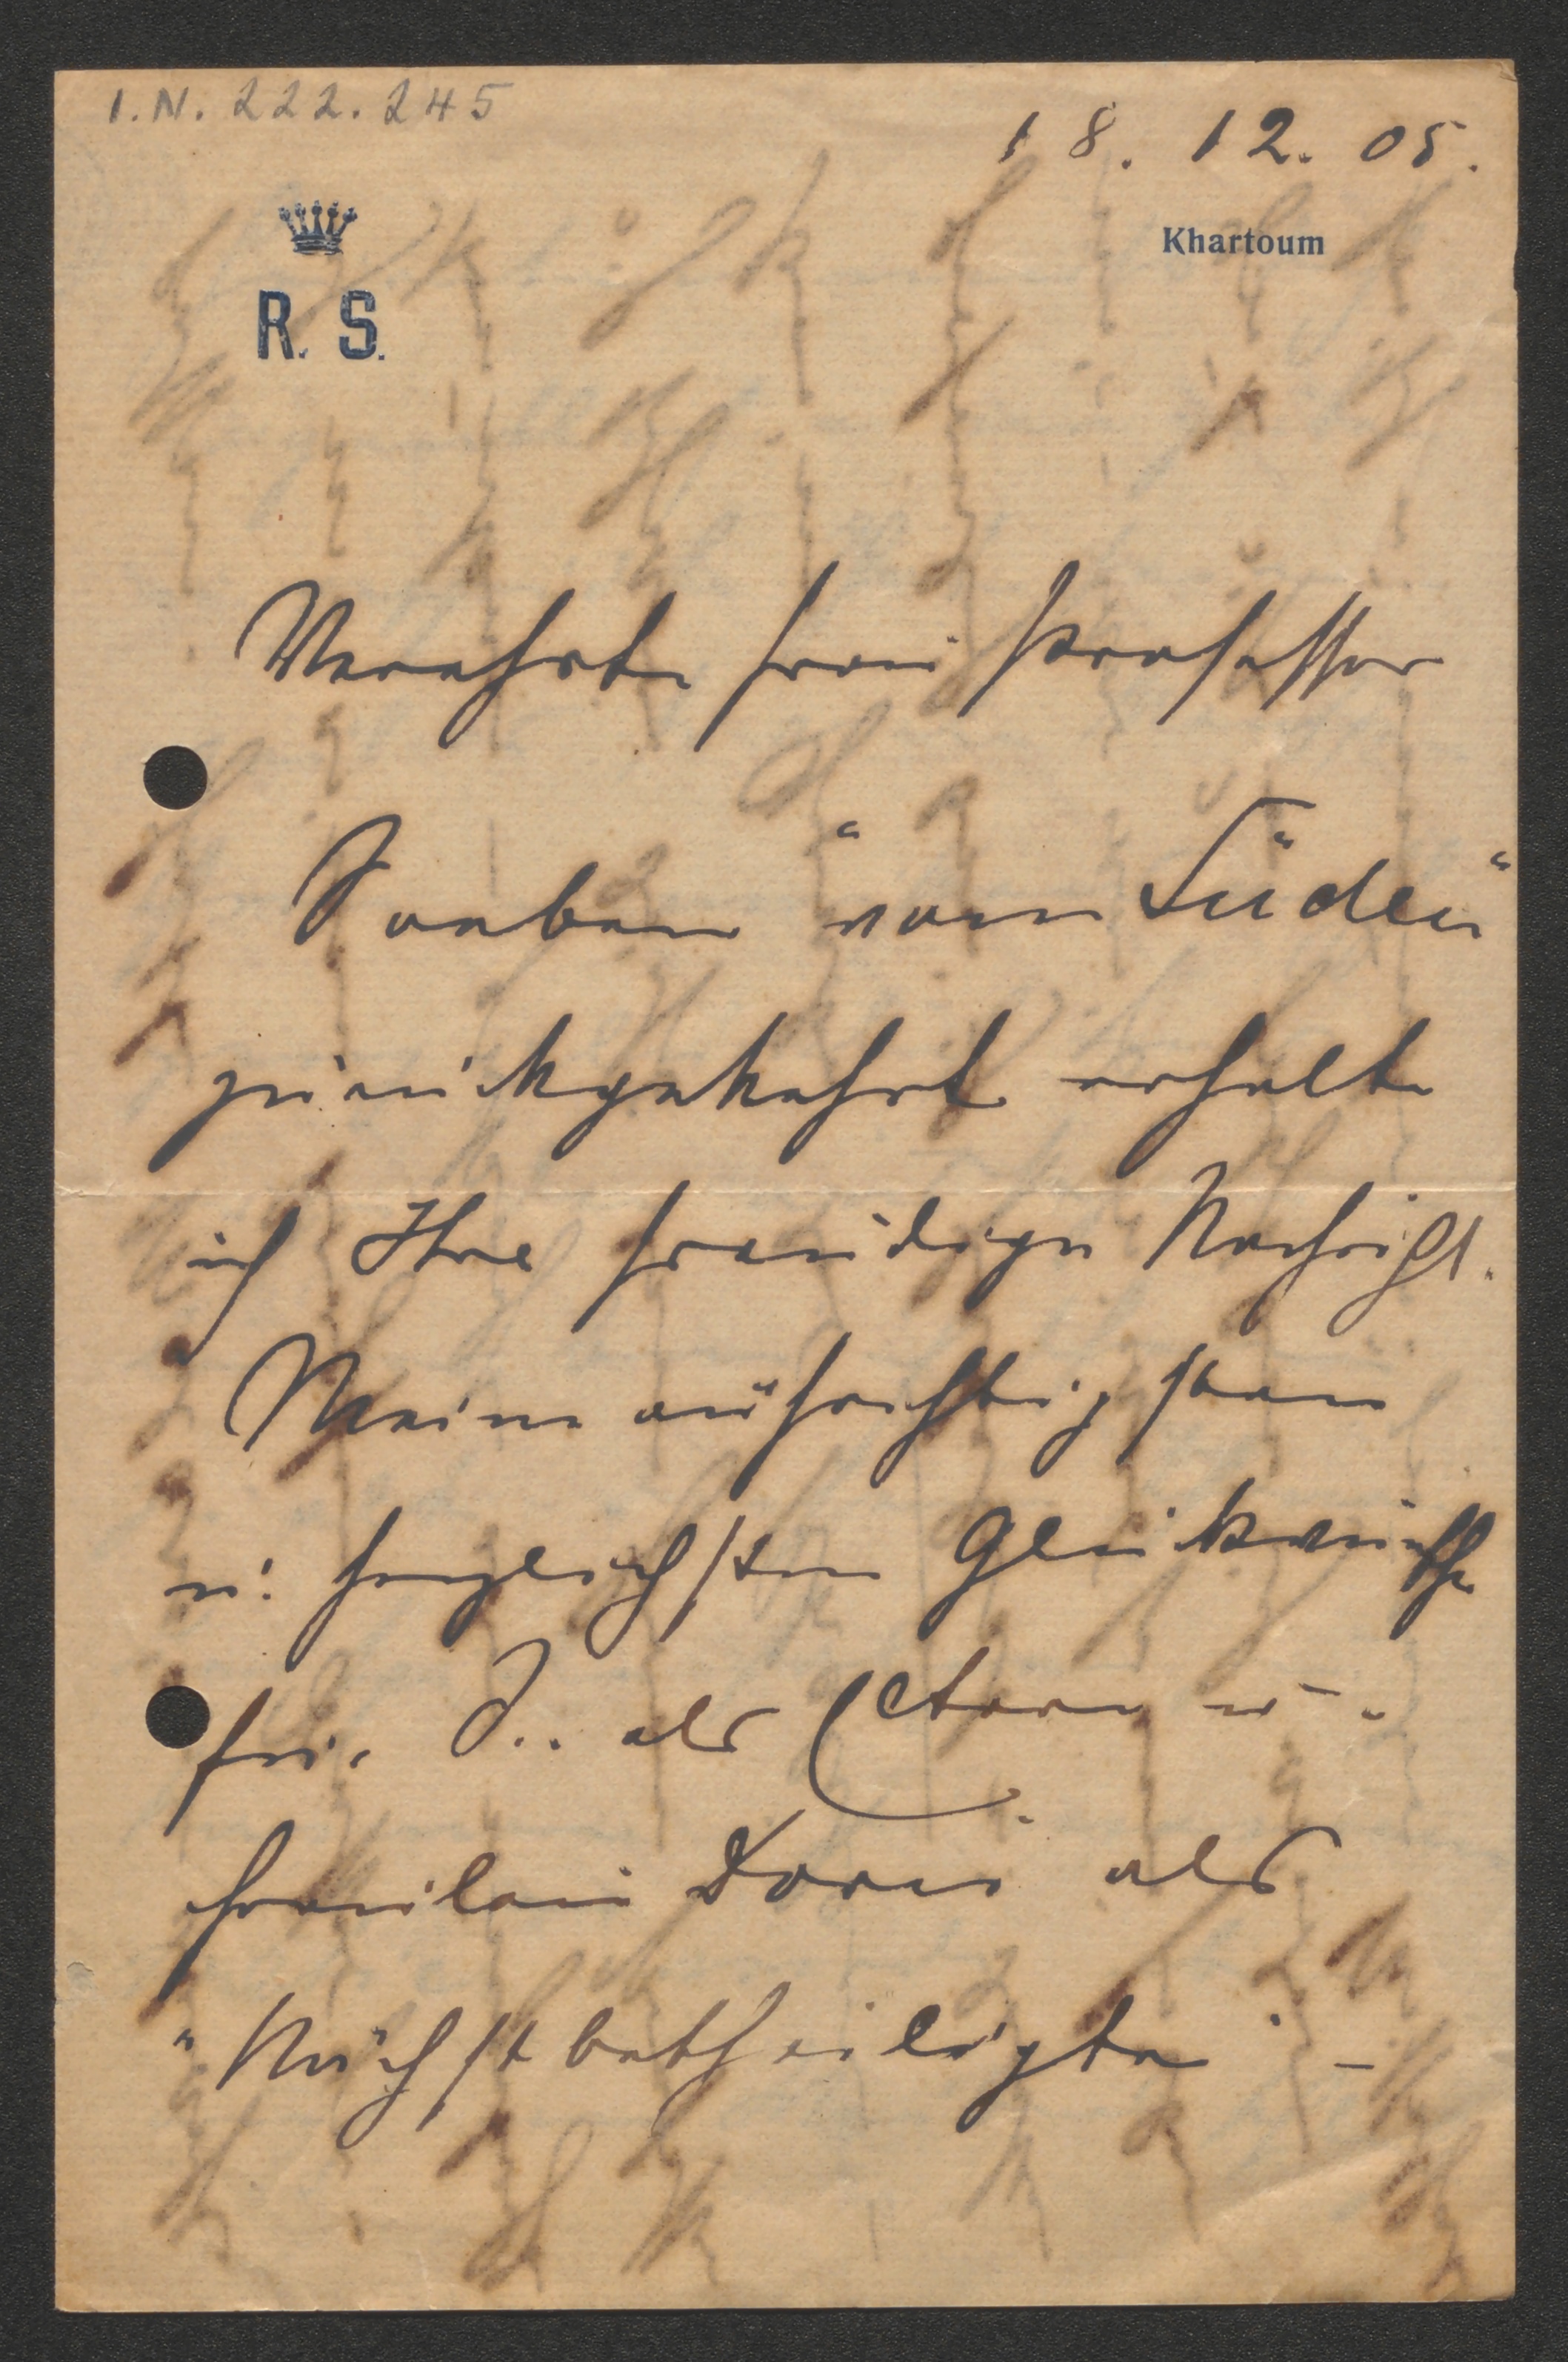 I.N. 222.245
18. 12. 05.
Khartoum
R. S.
Verehrte Frau Professor
Soeben "vom Süden"
zurückgekehrt erhalte
ich Ihre freudige Nachricht.
Meine aufrichtigsten
u. herzlichsten Glückwünsche
für S.. als u.
Fräulein Doris als
"Nächstbetheiligte" –